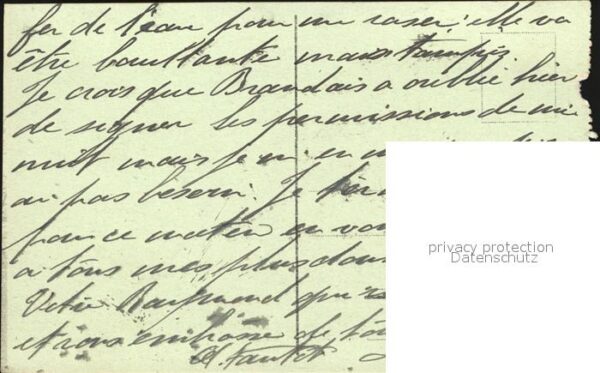 feu de l'eau pour me raser; elle va
être bouillante mais tampis
Je crois que Brandais a oublié hier
de signer les permissions de mi
nuit mais je m'en
ai pas besoin. Je
pour ce matin en
à tous mes plus
Votre Raymond qui
et vous embrasse de
privacy protection
Datenschutz